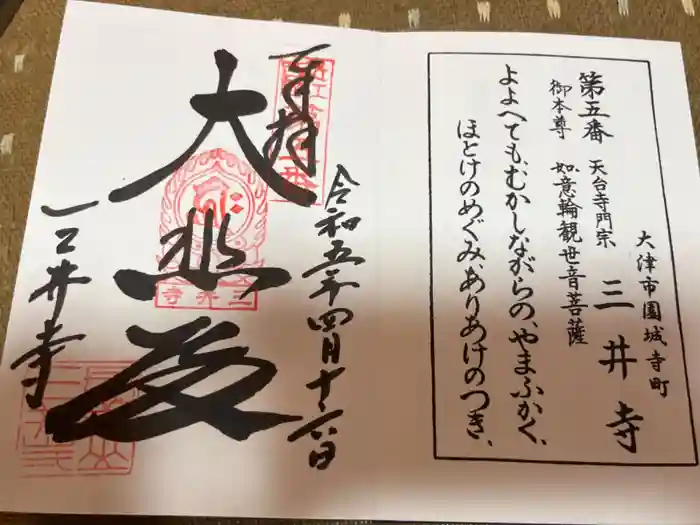 第五番 天台寺門宗
御本尊 如意輪観世音菩薩
大津市園城寺町
三井寺
よよへても、むかしながらの、やまふかく、
ほとけのめぐみ、ありあけのつき、
奉拝
令和五年四月十六日
大悲殿
三井寺
三井寺